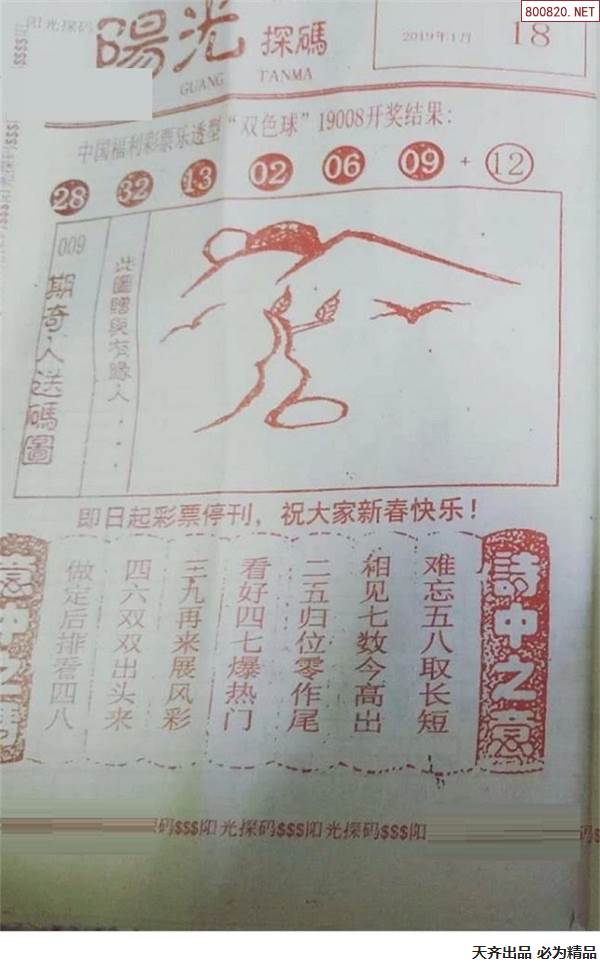 800820.NET
阳光探码
陽光 探碼
GUANG TANMA
2019年1月 18
中国福利彩票乐透型“双色球”19008开奖结果：
28 32 13 02 06 09 + 12
009期奇人送碼圖
此圖贈與有緣人...
即日起彩票停刊，祝大家新春快乐！
詩中之意
难忘五八取长短
相见七数今高出
二五归位零作尾
看好四七爆热门
三九再来展风彩
四六双双出头来
做定后排看四八
码$$$阳光探码$$$阳光探码$$$阳
天齐出品 必为精品